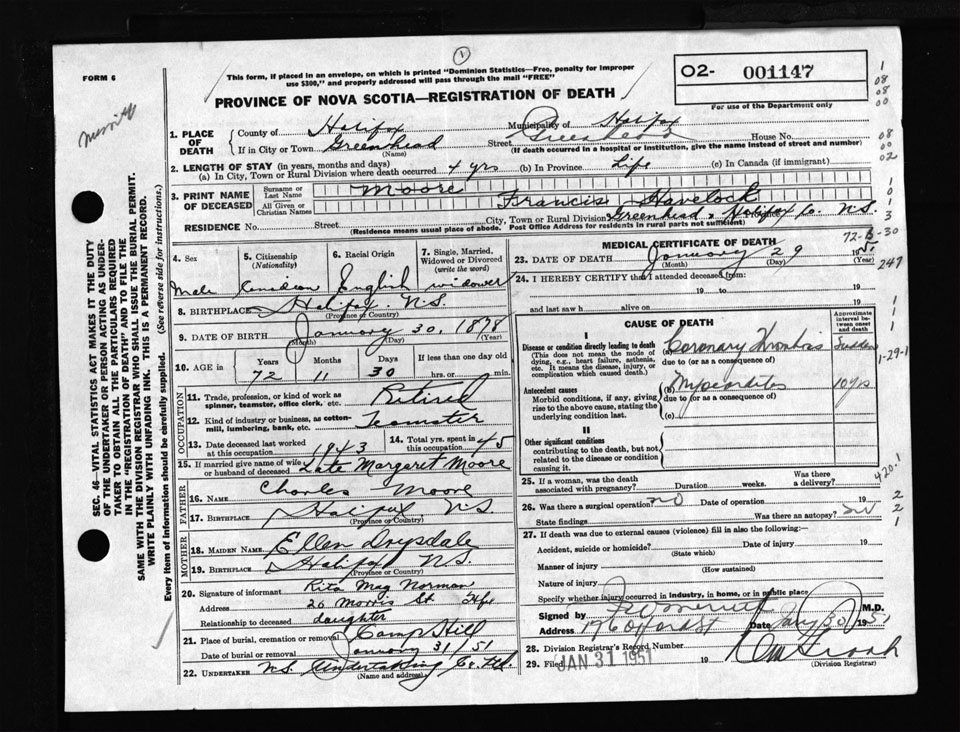 1
FORM 6
This form, if placed in an envelope, on which is printed "Dominion Statistics—Free, penalty for improper
use $300," and properly addressed will pass through the mail "FREE"
02- 001147
For use of the Department only
PROVINCE OF NOVA SCOTIA—REGISTRATION OF DEATH
Merritt
1. PLACE OF DEATH
County of Halifax Municipality of Halifax
If in City or Town Greenhead Street House No.
(Name) (If death occurred in a hospital or institution, give the name instead of street and number)
2. LENGTH OF STAY (in years, months and days)
(a) In City, Town or Rural Division where death occurred 4 yrs (b) In Province Life (c) In Canada (if immigrant)
3. PRINT NAME OF DECEASED
Surname or Last Name Moore
All Given or Christian Names Francis Havelock
RESIDENCE No. Street City, Town or Rural Division Greenhead, Halifax Co. N.S.
(Residence means usual place of abode. Post Office Address for residents in rural parts not sufficient)
4. Sex Male
5. Citizenship (Nationality) Canadian
6. Racial Origin English
7. Single, Married, Widowed or Divorced (write the word) widower
8. BIRTHPLACE Halifax N.S.
(Province or Country)
9. DATE OF BIRTH January 30, 1878
(Month) (Day) (Year)
10. AGE in Years Months Days If less than one day old
72 11 30 hrs. or min.
OCCUPATION
11. Trade, profession, or kind of work as spinner, teamster, office clerk, etc. Retired
12. Kind of industry or business, as cotton-mill, lumbering, bank, etc. Teamster
13. Date deceased last worked at this occupation 1943
14. Total yrs. spent in this occupation 45
15. If married give name of wife or husband of deceased Late Margaret Moore
FATHER
16. NAME Charles Moore
17. BIRTHPLACE Halifax N.S.
(Province or Country)
MOTHER
18. MAIDEN NAME Ellen Drysdale
19. BIRTHPLACE Halifax N.S.
(Province or Country)
20. Signature of informant Rita May Norman
Address 26 Morris St. Hfx
Relationship to deceased daughter
21. Place of burial, cremation or removal Camp Hill
Date of burial or removal January 31/51
22. UNDERTAKER N.S. Undertaking Co. Ltd.
(Name and address)
MEDICAL CERTIFICATE OF DEATH
72-6-30
23. DATE OF DEATH January 29
(Month) (Day) (Year)
247
24. I HEREBY CERTIFY that I attended deceased from:
19 to 19
and last saw h alive on 19
CAUSE OF DEATH
Approximate interval between onset and death
I
Disease or condition directly leading to death
(This does not mean the mode of dying, e.g., heart failure, asthenia, etc. It means the disease, injury, or complication which caused death.)
(a) Coronary Thrombosis Sudden
due to (or as a consequence of)
1-29-1
Antecedent causes
Morbid conditions, if any, giving rise to the above cause, stating the underlying condition last.
(b) Myocarditis 10 yrs
due to (or as a consequence of)
(c)
II
Other significant conditions
contributing to the death, but not related to the disease or condition causing it.
420-1
25. If a woman, was the death associated with pregnancy? Duration weeks. Was there a delivery?
26. Was there a surgical operation? no Date of operation 19
State findings Was there an autopsy?
27. If death was due to external causes (violence) fill in also the following:—
Accident, suicide or homicide? Date of injury 19
(State which)
Manner of injury
(How sustained)
Nature of injury
Specify whether injury occurred in industry, in home, or in public place
Signed by Merritt M.D.
Address Date 1951
28. Division Registrar's Record Number
29. Filed JAN 31 1951 19
(Division Registrar)
SEC. 46—VITAL STATISTICS ACT MAKES IT THE DUTY
OF THE UNDERTAKER OR PERSON ACTING AS UNDER-
TAKER TO OBTAIN ALL THE PARTICULARS REQUIRED
IN THE "REGISTRATION OF DEATH" AND TO FILE THE
SAME WITH THE DIVISION REGISTRAR WHO SHALL ISSUE THE BURIAL PERMIT.
WRITE PLAINLY WITH UNFADING INK. THIS IS A PERMANENT RECORD.
Every item of information should be carefully supplied. (See reverse side for instructions.)